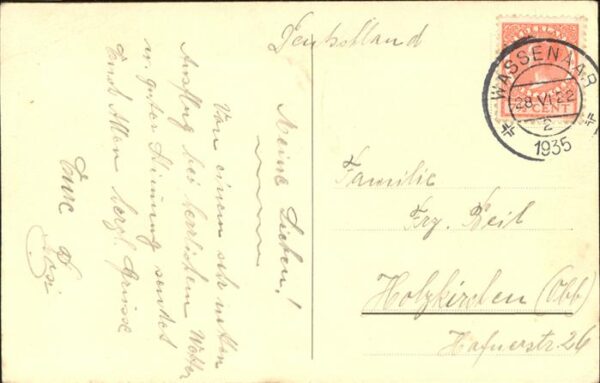 Deutschland
WASSENAAR
28 VI 22
2
1935
CENT
Meine Lieben!
Von einem sehr netten
Ausflug bei herrlichem Wetter
u. guter Stimmung sendet
Euch Allen herzl. Grüsse
Eure
Familie
Frz. Beil
Holzkirchen (Obb)
Hafnerstr. 26